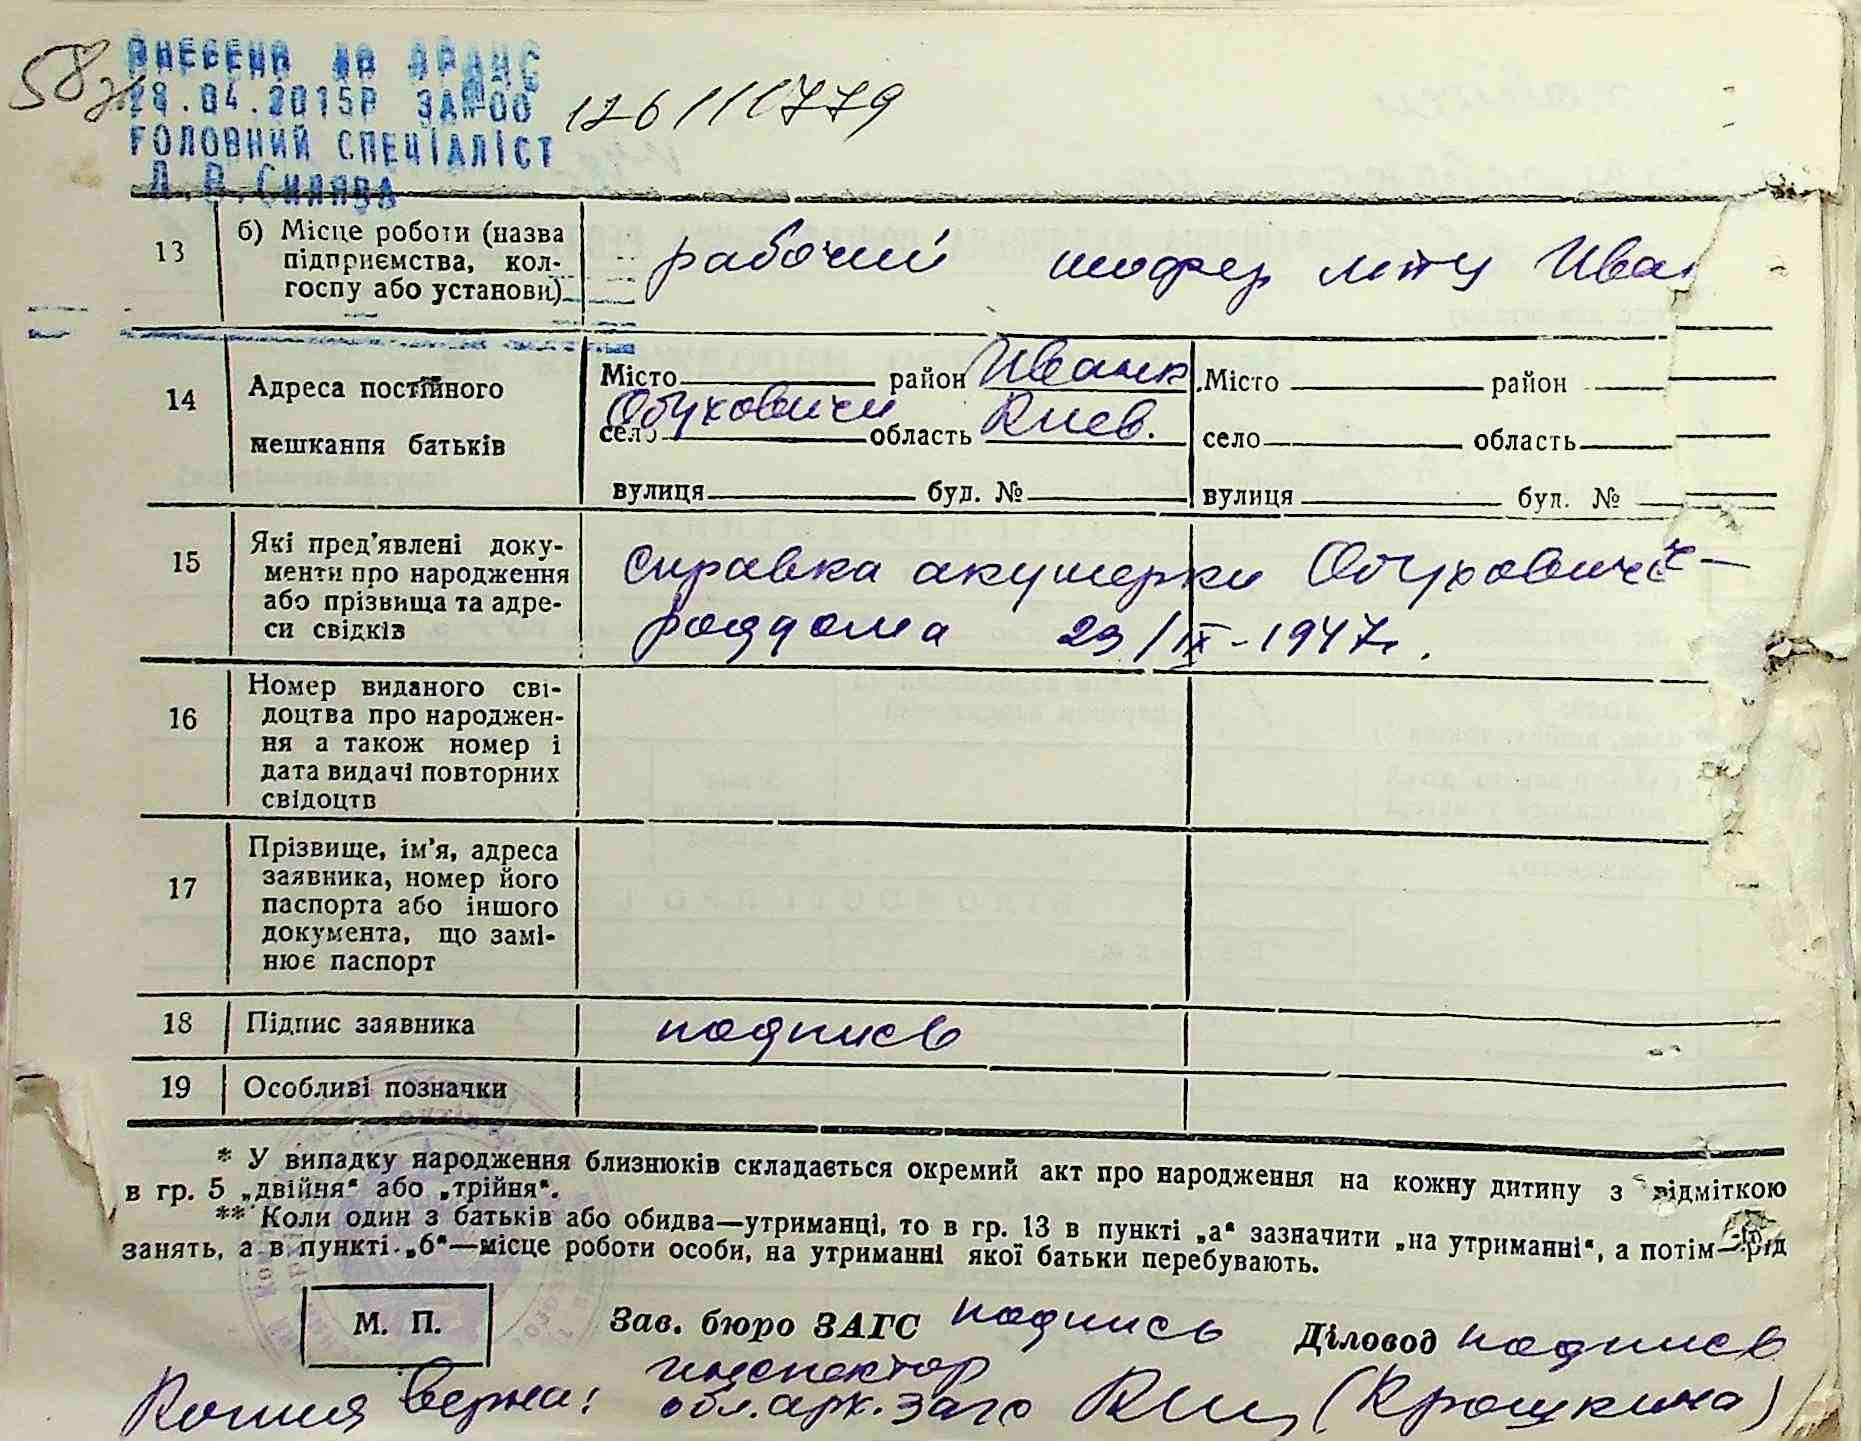 58
ВНЕСЕНА ДО ДРАЦС
28.04.2015Р ЗА №00 126111779
ГОЛОВНИЙ СПЕЦІАЛІСТ
Л.В.Силява
13 б) Місце роботи (назва підприємства, колгоспу або установи) рабочий шофер мтц Иван
14 Адреса постійного мешкання батьків
Місто район Иванк Місто район
село Обуховичи область Киев. село область
вулиця буд. № вулиця буд. №
15 Які пред'явлені доку-
менти про народження
або прізвища та адре-
си свідків
Справка акушерки Обухович-
роддома 29/IX-1947г.
16 Номер виданого сві-
доцтва про народжен-
ня а також номер і
дата видачі повторних
свідоцтв
17 Прізвище, ім'я, адреса
заявника, номер його
паспорта або іншого
документа, що замі-
нює паспорт
18 Підпис заявника подпись
19 Особливі позначки
* У випадку народження близнюків складається окремий акт про народження на кожну дитину з відміткою
в гр. 5 „двійня“ або „трійня“.
** Коли один з батьків або обидва—утриманці, то в гр. 13 в пункті „а“ зазначити „на утриманні“, а потім—рід
занять, а в пункті „б“—місце роботи особи, на утриманні якої батьки перебувають.
М. П. Зав. бюро ЗАГС подпись Діловод подпись
Копия верна: инспектор
обл.арх.загс (Крошкина)